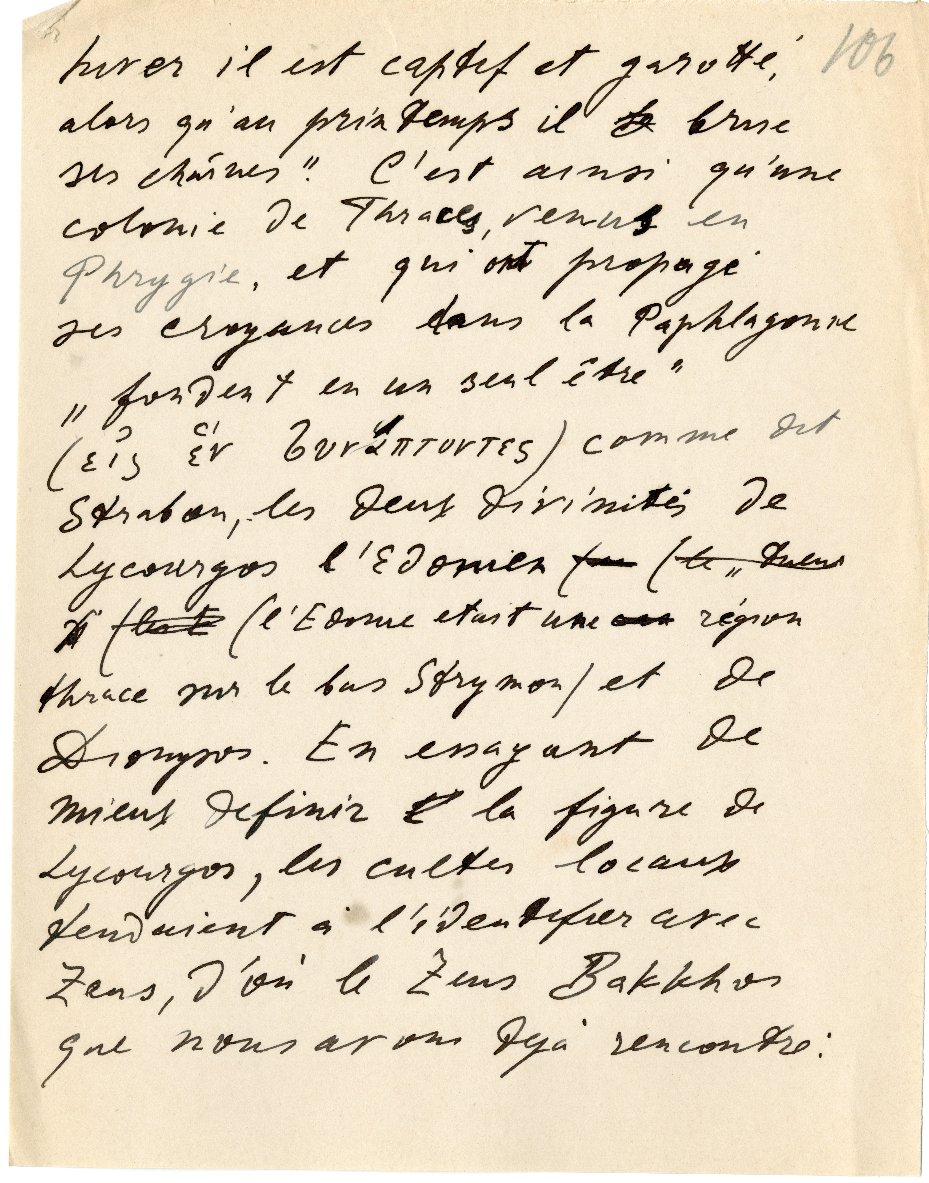 106
hiver il est captif et garotté,
alors qu'au printemps il brise
ses chaînes". C'est ainsi qu'une
colonie de Thraces, venus en
Phrygie, et qui ont propagé
ses croyances dans la Paphlagonie
„fondent en un seul être"
(εἰς ἕν συνάπτοντες) comme dit
Strabon, les deux divinités de
Lycourgos l'Edonien (le „tueur
(l'Edonie etait une région
thrace sur le bas Strymon) et de
Dionysos. En essayant de
mieux definir la figure de
Lycourgos, les cultes locaux
tendaient à l'identifier avec
Zeus, d'où le Zeus Bakkhos
que nous avons dejà rencontré.